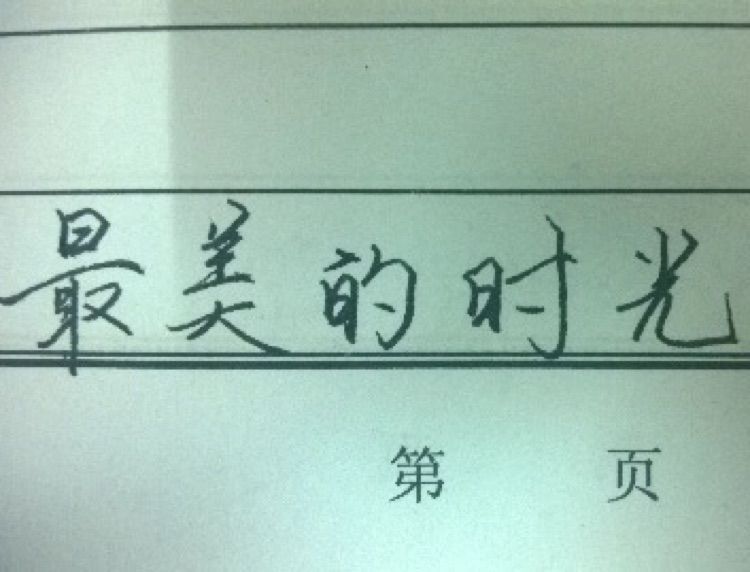 最美的时光
第 页